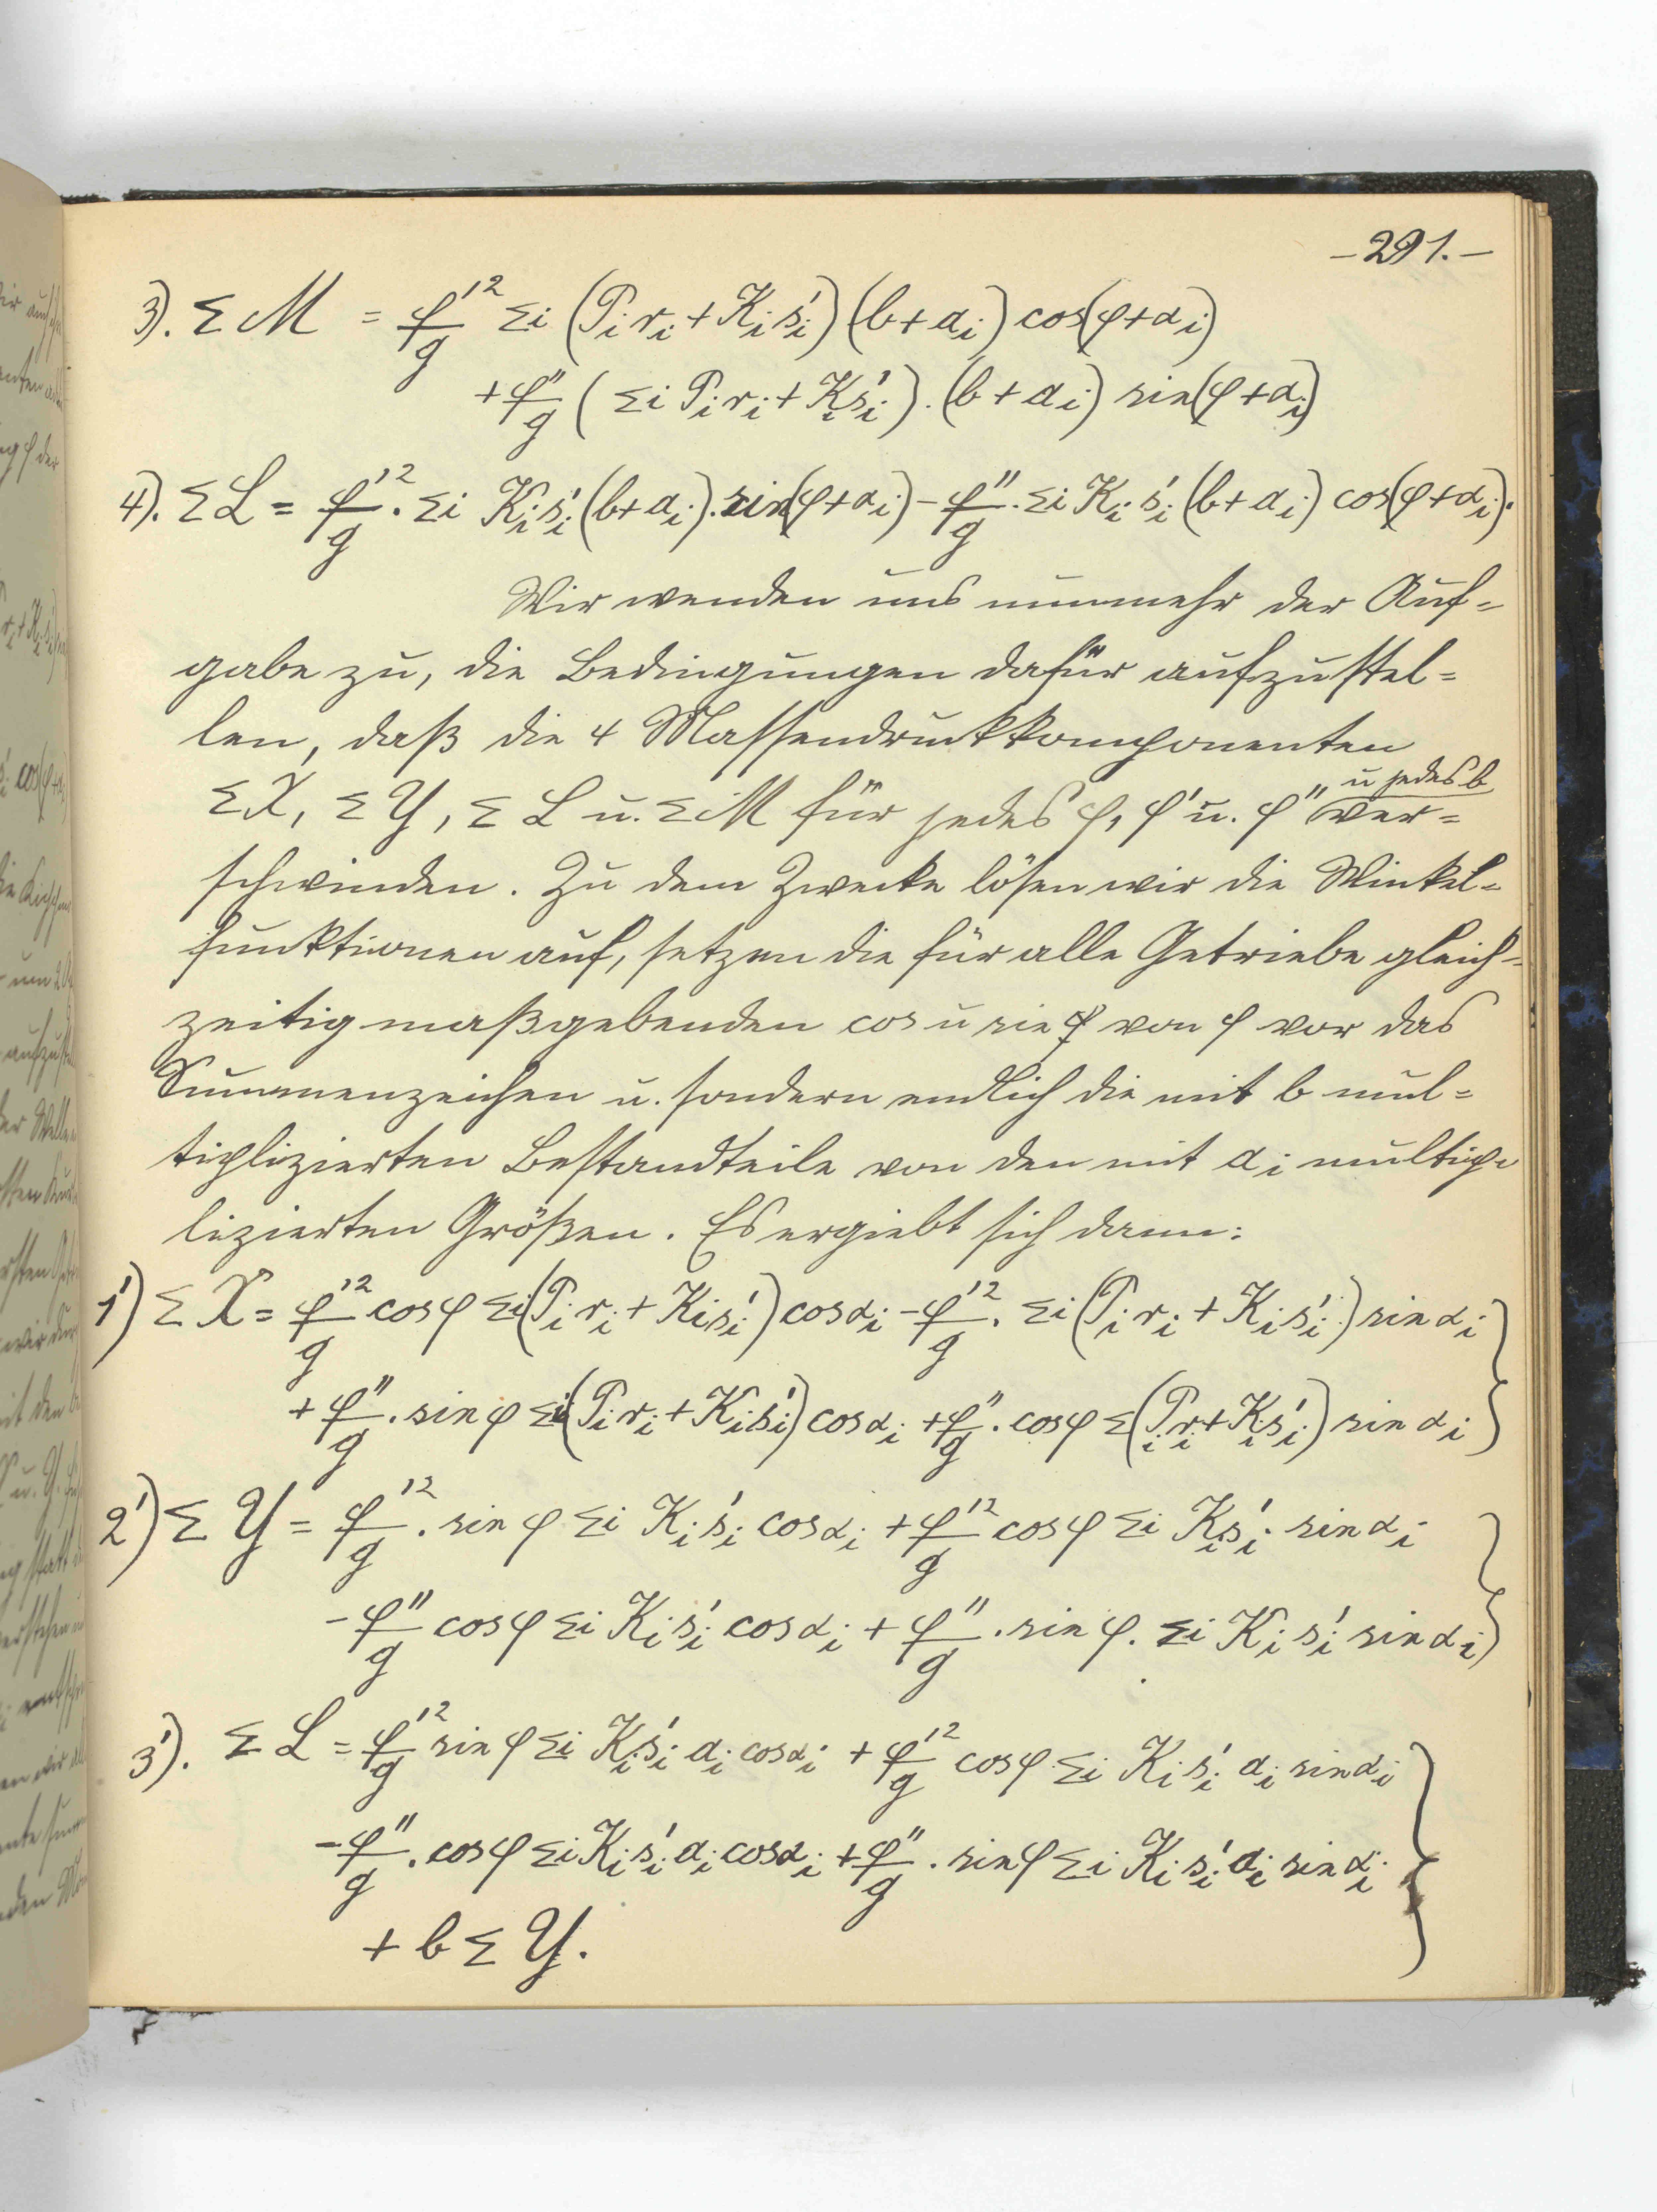 -291.-
3). Σ M = φ'²/g Σi (Pi ri + Ki s'i) (b + ai) cos(φ+αi)
+ φ''/g ( Σi Pi ri + Ki s'i ) . (b + ai) sin(φ+αi)
4). Σ L = φ'²/g . Σi Ki s'i (b+ai) . sin(φ+αi) - φ''/g . Σi Ki s'i (b+ai) cos(φ+αi).
Wir wenden uns nunmehr der Auf=
gabe zu, die Bedingungen dafür aufzustel=
len, daß die 4 Massendruckkomponenten
u jedes b
ΣX, ΣY, ΣL u. ΣM für jedes φ, φ' u. φ'' ver=
schwinden. Zu dem Zwecke lösen wir die Winkel=
funktionen auf, setzen die für alle Getriebe gleich=
zeitig maßgebenden cos u sin φ von φ vor das
Summenzeichen u. sondern endlich die mit b mul=
tiplizierten Bestandteile von den mit ai multip=
lizierten Größen. Es ergiebt sich dann:
1') Σ X = φ'²/g cosφ Σi (Pi ri + Ki s'i) cosαi - φ'²/g . Σi (Pi ri + Ki s'i) sin αi
+ φ''/g . sin φ Σi (Pi ri + Ki s'i) cosαi + φ''/g . cosφ Σ (Pi ri + Ki s'i) sin αi
2') Σ Y = φ'²/g . sin φ Σi Ki s'i cosαi + φ'²/g cosφ Σi Ki s'i . sin αi
- φ''/g cosφ Σi Ki s'i cosαi + φ''/g . sin φ . Σi Ki s'i sin αi
3'). Σ L = φ'²/g sin φ Σi Ki s'i ai cosαi + φ'²/g cosφ . Σi Ki s'i ai sinαi
- φ''/g . cosφ Σi Ki s'i ai cosαi + φ''/g . sinφ Σi Ki s'i ai sin αi
+ b Σ Y.